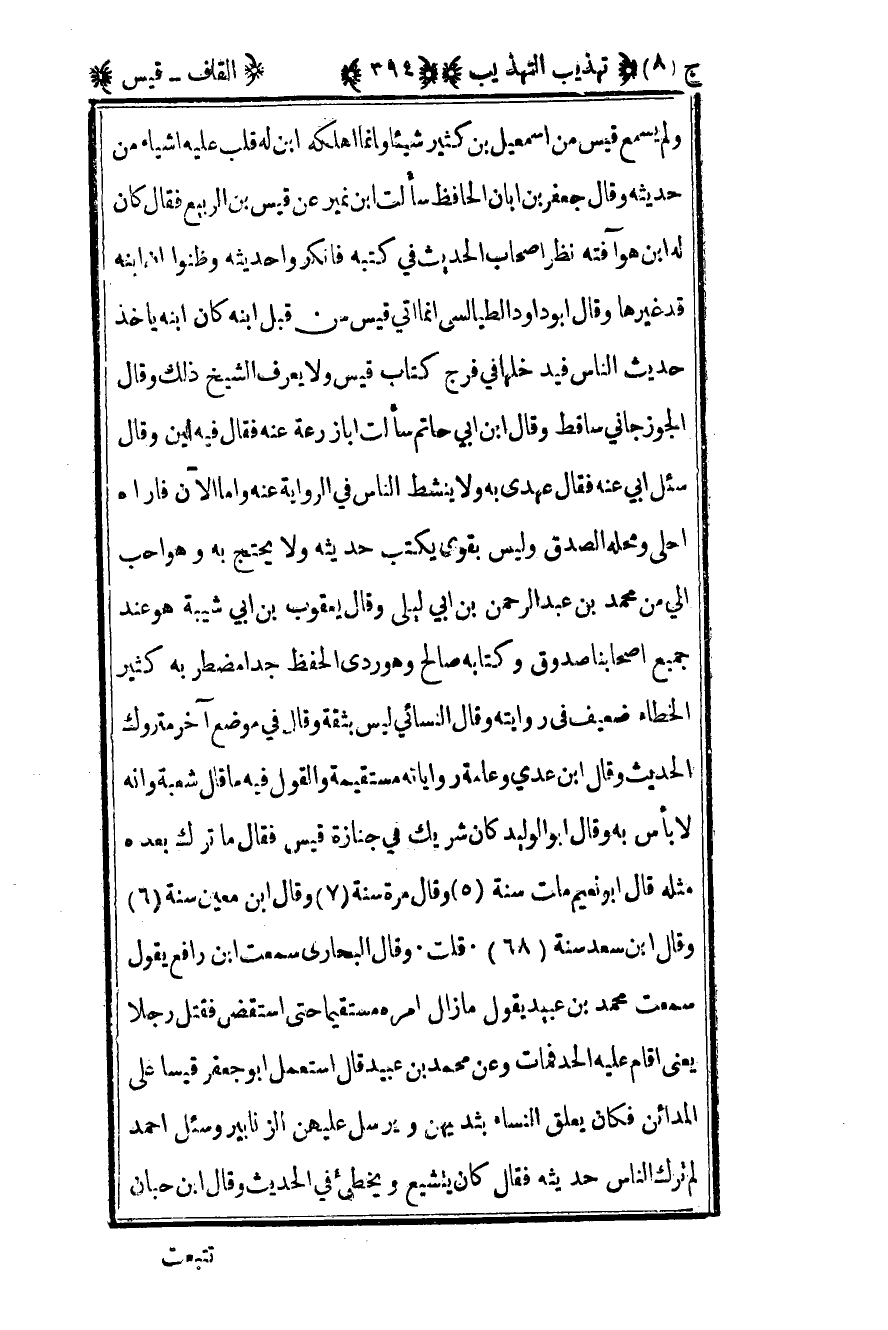 ج (٨) تهذيب التهذيب ٣٩٤ القاف - قيس
ولم يسمع قيس من اسمعيل بن كثير شيئا وانما اهلكه ابن له قلب عليه اشياء من
حديثه وقال جعفر بن ابان الحافظ سألت ابن نمير عن قيس بن الربيع فقال كان
له ابن هو آفته نظر اصحاب الحديث في كتبه فانكروا حديثه وظنوا ان ابنه
قد غيرها وقال ابو داود الطيالسى انما اتي قيس من قبل ابنه كان ابنه ياخذ
حديث الناس فيد خلها في فرج كتاب قيس ولا يعرف الشيخ ذلك وقال
الجوزجاني ساقط وقال ابن ابي حاتم سألت ابا زرعة عنه فقال فيه لين وقال
سئل ابي عنه فقال عهدى به ولا ينشط الناس في الرواية عنه واما الآن فاراه
احلى ومحله الصدق وليس بقوى يكتب حديثه ولا يحتج به وهو احب
الي من محمد بن عبدالرحمن بن ابي ليلى وقال يعقوب بن ابي شيبة هو عند
جميع اصحابنا صدوق وكتابه صالح وهو ردى الحفظ جدا مضطر به كثير
الخطاء ضعيف فى روايته وقال النسائي ليس بثقة وقال في موضع آخر متروك
الحديث وقال ابن عدي وعامة رواياته مستقيمة والقول فيه ما قال شعبة وانه
لا بأس به وقال ابو الوليد كان شريك في جنازة قيس فقال ما ترك بعده
مثله قال ابو نعيم مات سنة (٥) وقال مرة سنة (٧) وقال ابن معين سنة (٦)
وقال ابن سعد سنة (٦٨) · قلت · وقال البخارى سمعت ابن رافع يقول
سمعت محمد بن عبيد يقول ما زال امره مستقيما حتى استقض فقتل رجلا
يعنى اقام عليه الحد فمات وعن محمد بن عبيد قال استعمل ابو جعفر قيسا على
المدائن فكان يعلق النساء بثديهن ويرسل عليهن الزنابير وسئل احمد
لم ترك الناس حديثه فقال كان يتشيع و يخطئ في الحديث وقال ابن حبان
تتبعت